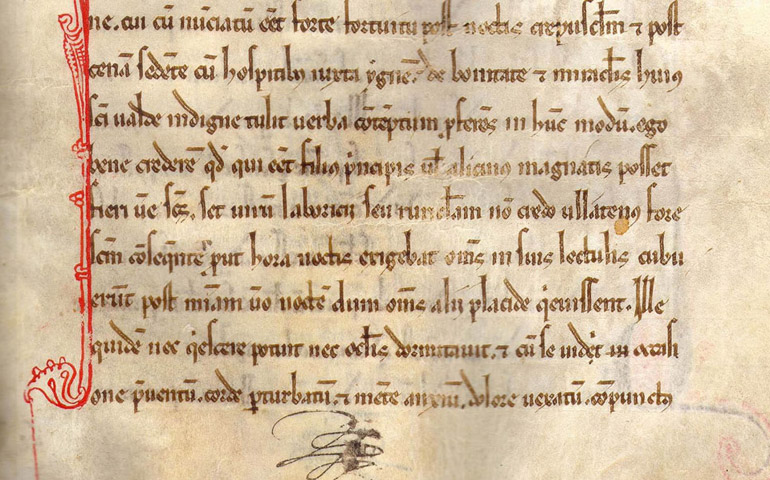 ne. cui cū nūciatū eēt forte fortuitu post noctis crepuscl̄m ⁊ post
cenā sedēte cū hospitibꝫ iuxta ygnē. de bonitate ⁊ miracl̄is huiꝰ
sc̄i ualde indigne tulit uerba cōtēptum ꝓferēs in hūc modū. ego
bene crederē qd̄ qui eēt filiꝰ pͥncipis ul̄ alicuiꝰ magnatis posset
fieri ūe sc̄s. set uirū laboricii seu rusticl̄am nō credo ullatenꝰ fore
sc̄m cōseqn̄te ꝓut hora noctis erigebat om̄s in suis lectulis cubu
erūt post
noctē dum om̄s alij placide qͥeuissent. Ille
quidē nec qͥescere potuit nec ocl̄is dormitauit. ⁊ cū se uidet in occisi
one p̄uentū. corde ꝑturbatū. ⁊ mēte anxiū. dolore uexatū. cōpunctꝰ